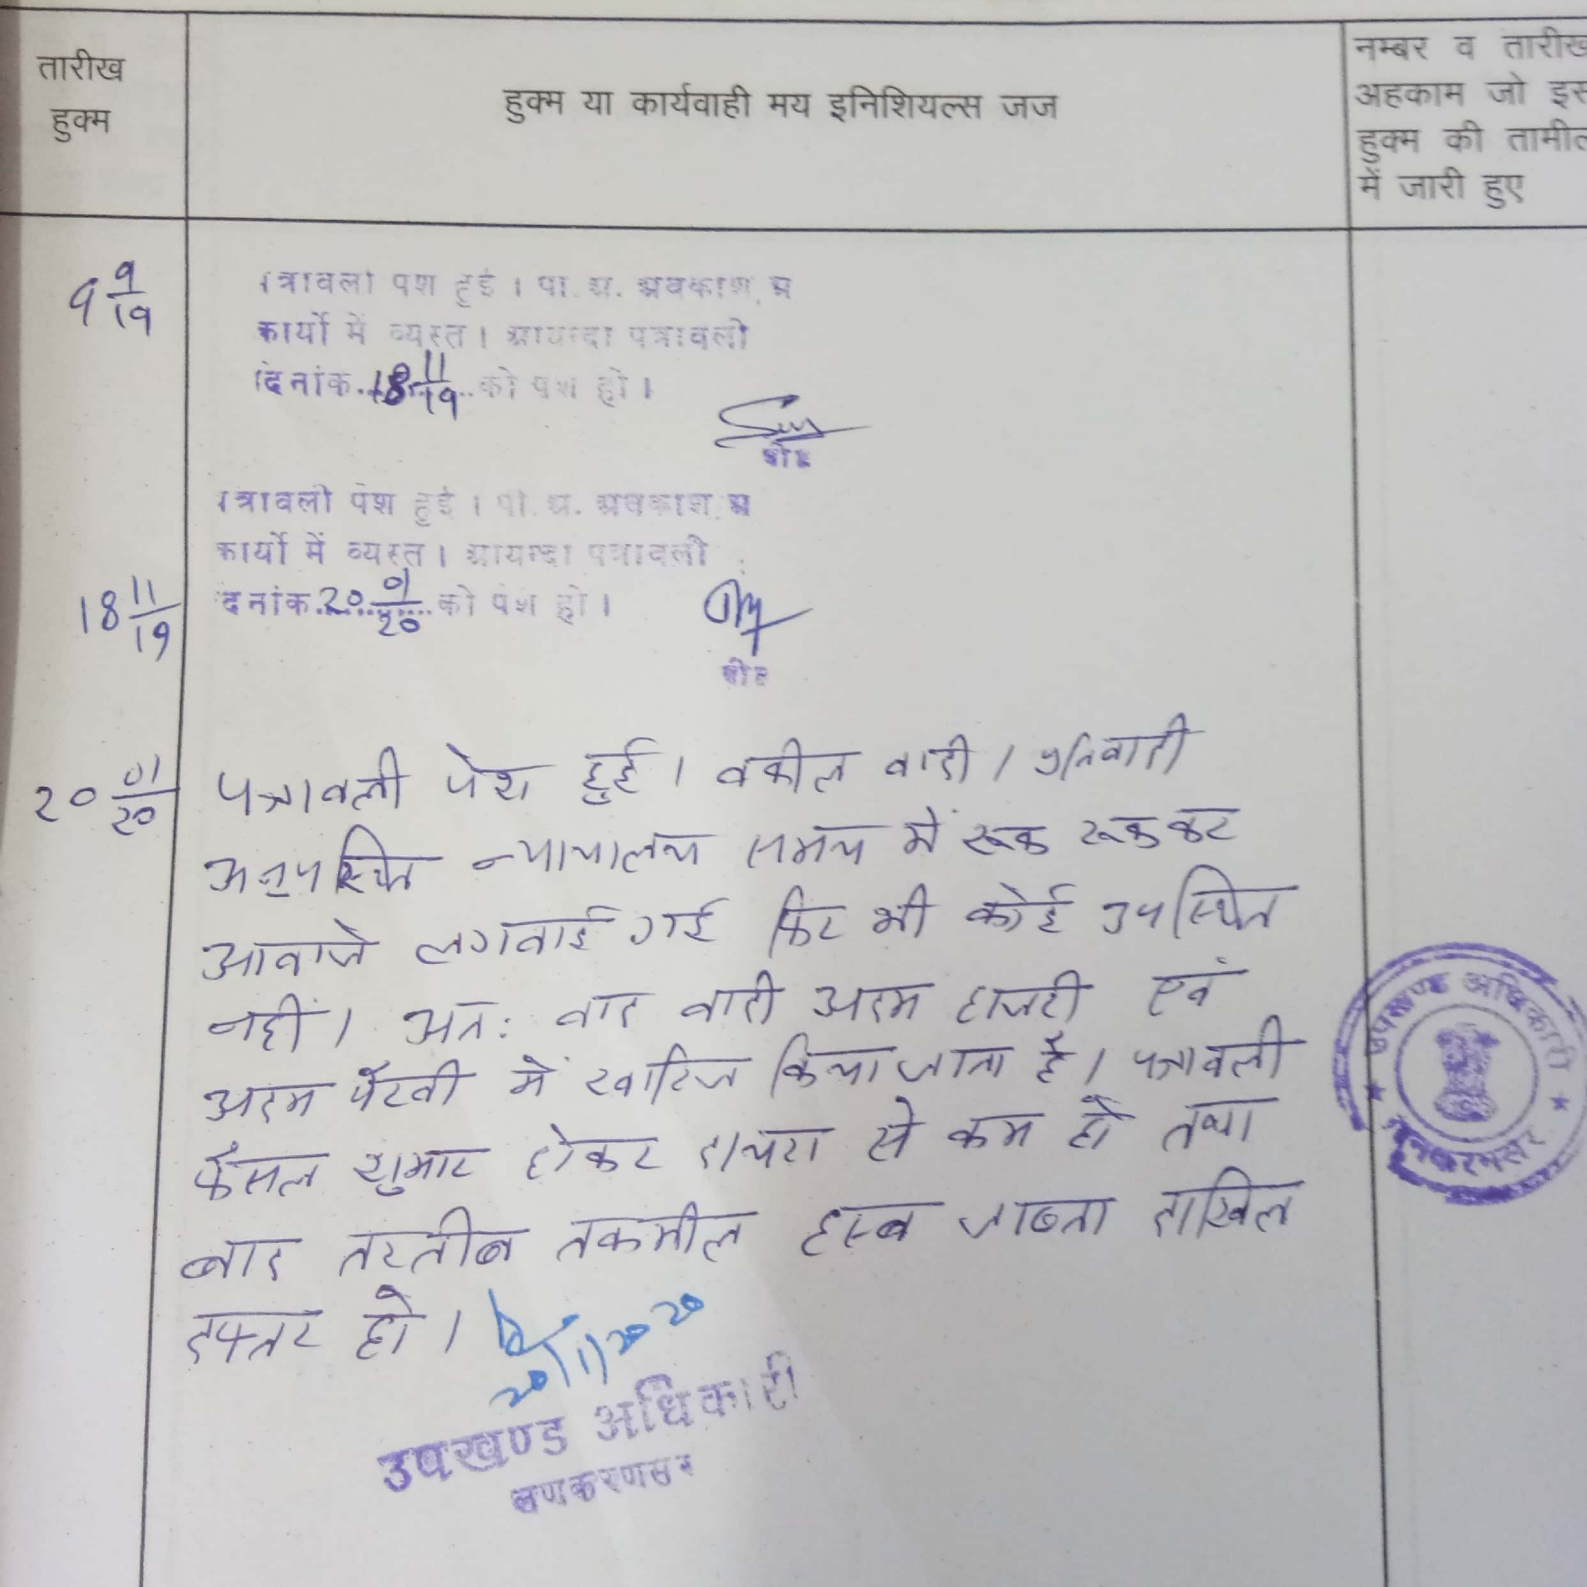 तारीख
हुक्म
हुक्म या कार्यवाही मय इनिशियल्स जज
नम्बर व तारीख
अहकाम जो इस
हुक्म की तामील
में जारी हुए
9 9/19
त्रावली पेश हुई । पी. अ. अवकाश, अ
कार्यो में व्यस्त । आयन्दा पत्रावली
दिनांक 18 11/19 को पेश हो ।
त्रावली पेश हुई । पी. अ. अवकाश, अ
कार्यो में व्यस्त । आयन्दा पत्रावली
18 11/19
दनांक 20 01/20 को पेश हो ।
20 01/20
पत्रावली पेश हुई । वकील वादी / प्रतिवादी
अनुपस्थित न्यायालय समय में रूक रूककर
आवाजे लगवाई गई फिर भी कोई उपस्थित
नहीं । अतः वाद वादी अदम हाजरी एवं
अदम पैरवी में खारिज किया जाता है । पत्रावली
फैसल शुमार होकर दायरा से कम हो तथा
बाद तरतीब तकमील हस्ब जाब्ता दाखिल
दफ्तर हो ।
20/1/2020
उपखण्ड अधिकारी
लूणकरणसर
उपखण्ड अधिकारी
लूनकरनसर